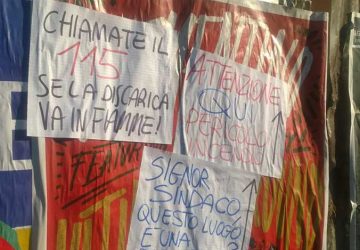 CHIAMATE IL
115
SE LA DISCARICA
VA IN FIAMME!
ATTENZIONE
QUI
PERICOLO
INCENDIO
SIGNOR
SINDACO,
QUESTO LUOGO
È UNA